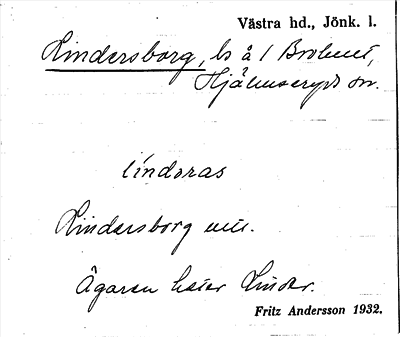 Västra hd., Jönk. l.
Lindersborg, ls å 1 Brohult,
Hjälmseryds sn.
lindəras
Lindersborg
Ägaren heter Linder.
Fritz Andersson 1932.